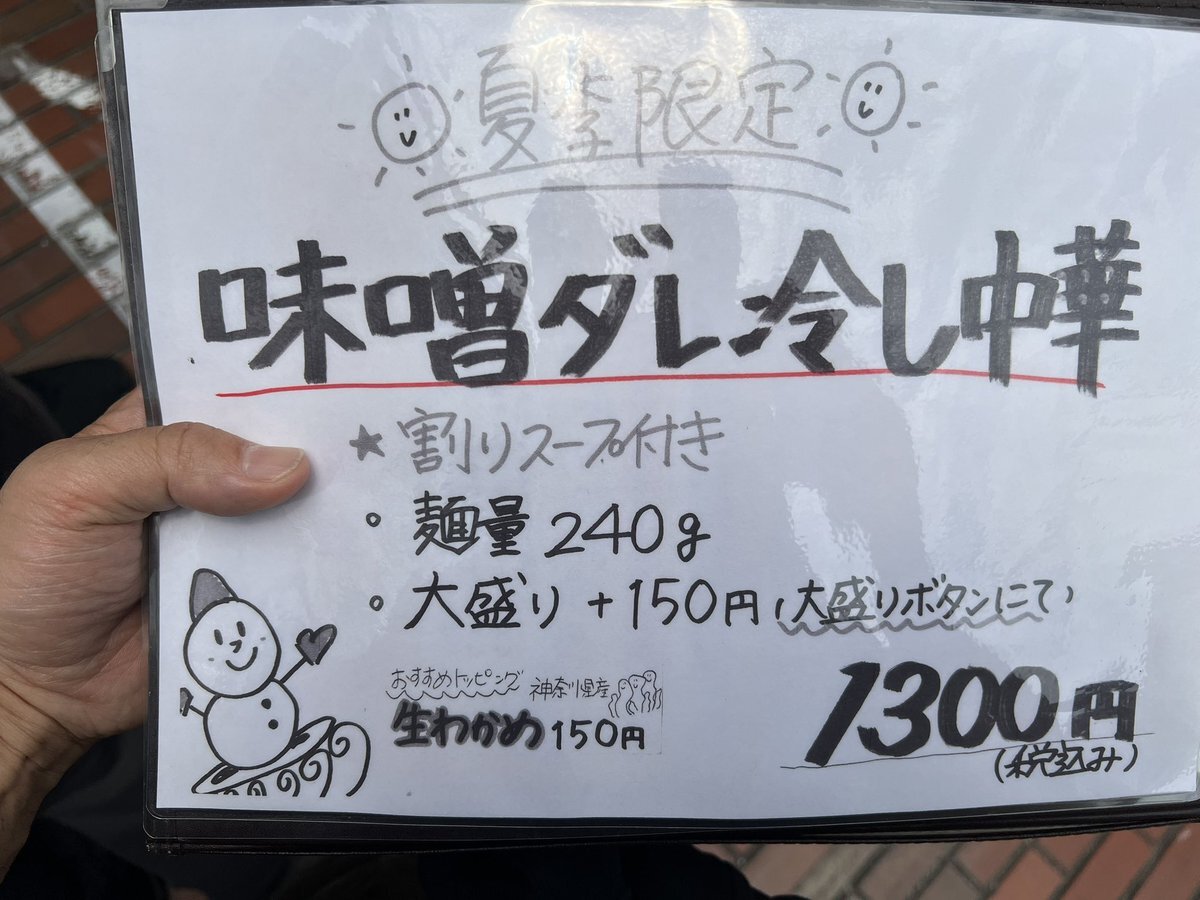 夏季限定
味噌ダレ冷し中華
★割りスープ付き
・麺量 240g
・大盛り +150円(大盛りボタンにて)
おすすめトッピング 神奈川県産
生わかめ 150円
1300円
(税込み)